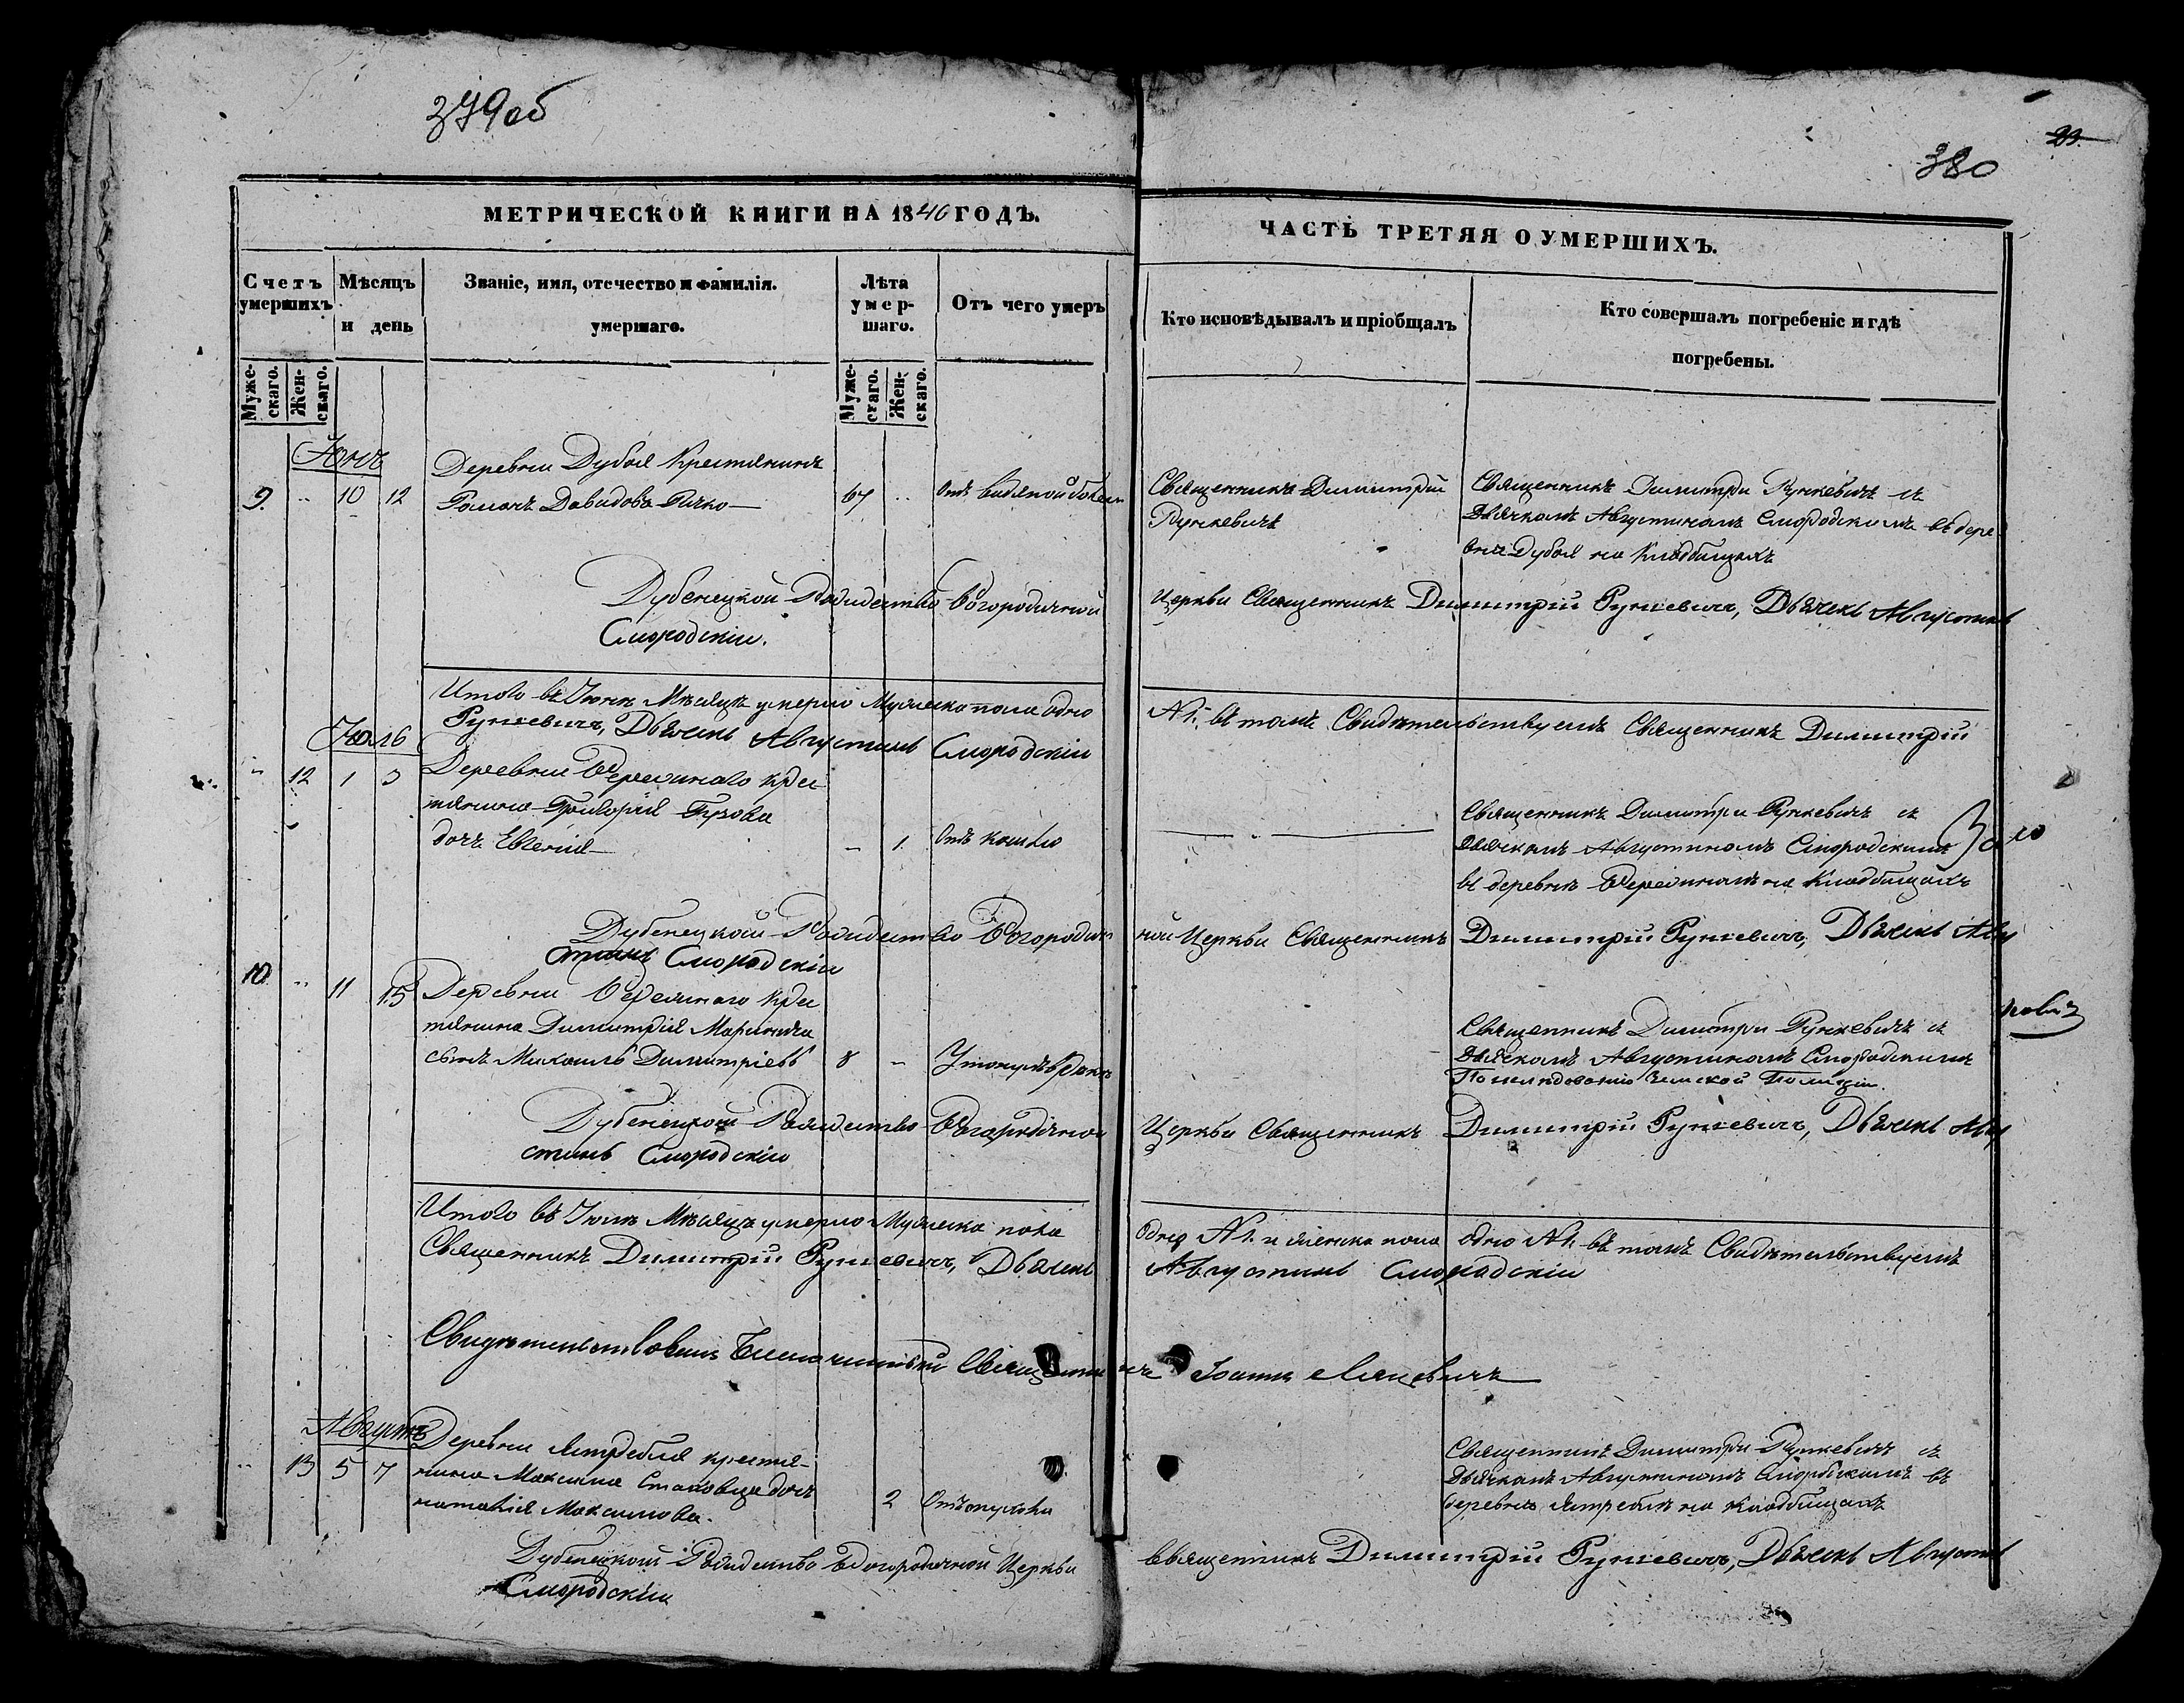 379об
380
23.
МЕТРИЧЕСКОЙ КНИГИ НА 1840 ГОДЪ.
ЧАСТЬ ТРЕТЯЯ О УМЕРШИХЪ.
Счетъ умершихъ
Мѣсяцъ и день
Званіе, имя, отечество и фамилія.
умершаго.
Лѣта умер-
шаго.
Отъ чего умеръ
Кто исповѣдывалъ и пріобщалъ
Кто совершалъ погребеніе и гдѣ
погребены.
Муже-
скаго.
Жен-
скаго.
Муже-
скаго.
Жен-
скаго.
Деревни Дубоя Крестянинъ
9. 10 12 Романъ Давидовъ 67 Отъ
Священникъ Димитрій
Рункевичъ
Священникъ Димитри Рункевичъ съ
Дьячкомъ Августиномъ Смородскимъ въ дере
внѣ Дубоя на Кладбищахъ
Дубенецкой Рождество Богородичной Церкви Священникъ Димитрій Рункевичъ, Дьячекъ Августинъ
Смородскій.
Итого въ Іюнѣ Мѣсяцѣ умерло Мужеска пола одно № 1. въ томъ Свидѣтельствуемъ Священникъ Димитрій
Рункевичъ, Дьячекъ Августинъ Смородскій
Іюль
12 1 3 Деревни Кре
тянина Григорія
дочь Евгенія 1. Отъ кашлю
Священникъ Димитри Рункевичъ съ
Дьячкомъ Августиномъ Смородскимъ
въ деревнѣ на Кладбищахъ
Дубенецкой Рождество Богородич ной Церкви Священникъ Димитрій Рункевичъ, Дьячекъ Авгу
стинъ Смородскій
10. 11 15 Деревни Кре
тянина Димитрія
сынъ Михаилъ Димитріевъ 8 Утонулъ
Священникъ Димитри Рункевичъ съ
Дьячкомъ Августиномъ Смородскимъ
Земской Полиціи.
Дубенецкой Рождество Богородичной Церкви Священникъ Димитрій Рункевичъ, Дьячекъ Авгу
стинъ Смородскій
Итого въ Іюлѣ Мѣсяцѣ умерло Мужеска пола одно № 1. и женска пола одно № 1. въ томъ Свидѣтельствуемъ
Священникъ Димитрій Рункевичъ, Дьячекъ Августинъ Смородскій
Свидѣтельствовалъ Благочинный Священникъ Іоаннъ
Августъ
13 5 7 Деревни Ястребля крестя-
нина Максима дочь
Наталія Максимова. 2
Священникъ Димитри Рункевичъ съ
Дьячкомъ Августиномъ Смородскимъ въ
деревнѣ Ястреблѣ на Кладбищахъ
Дубенецкой Рождество Богородичной Церкви Священникъ Димитрій Рункевичъ, Дьячекъ Августинъ
Смородскій